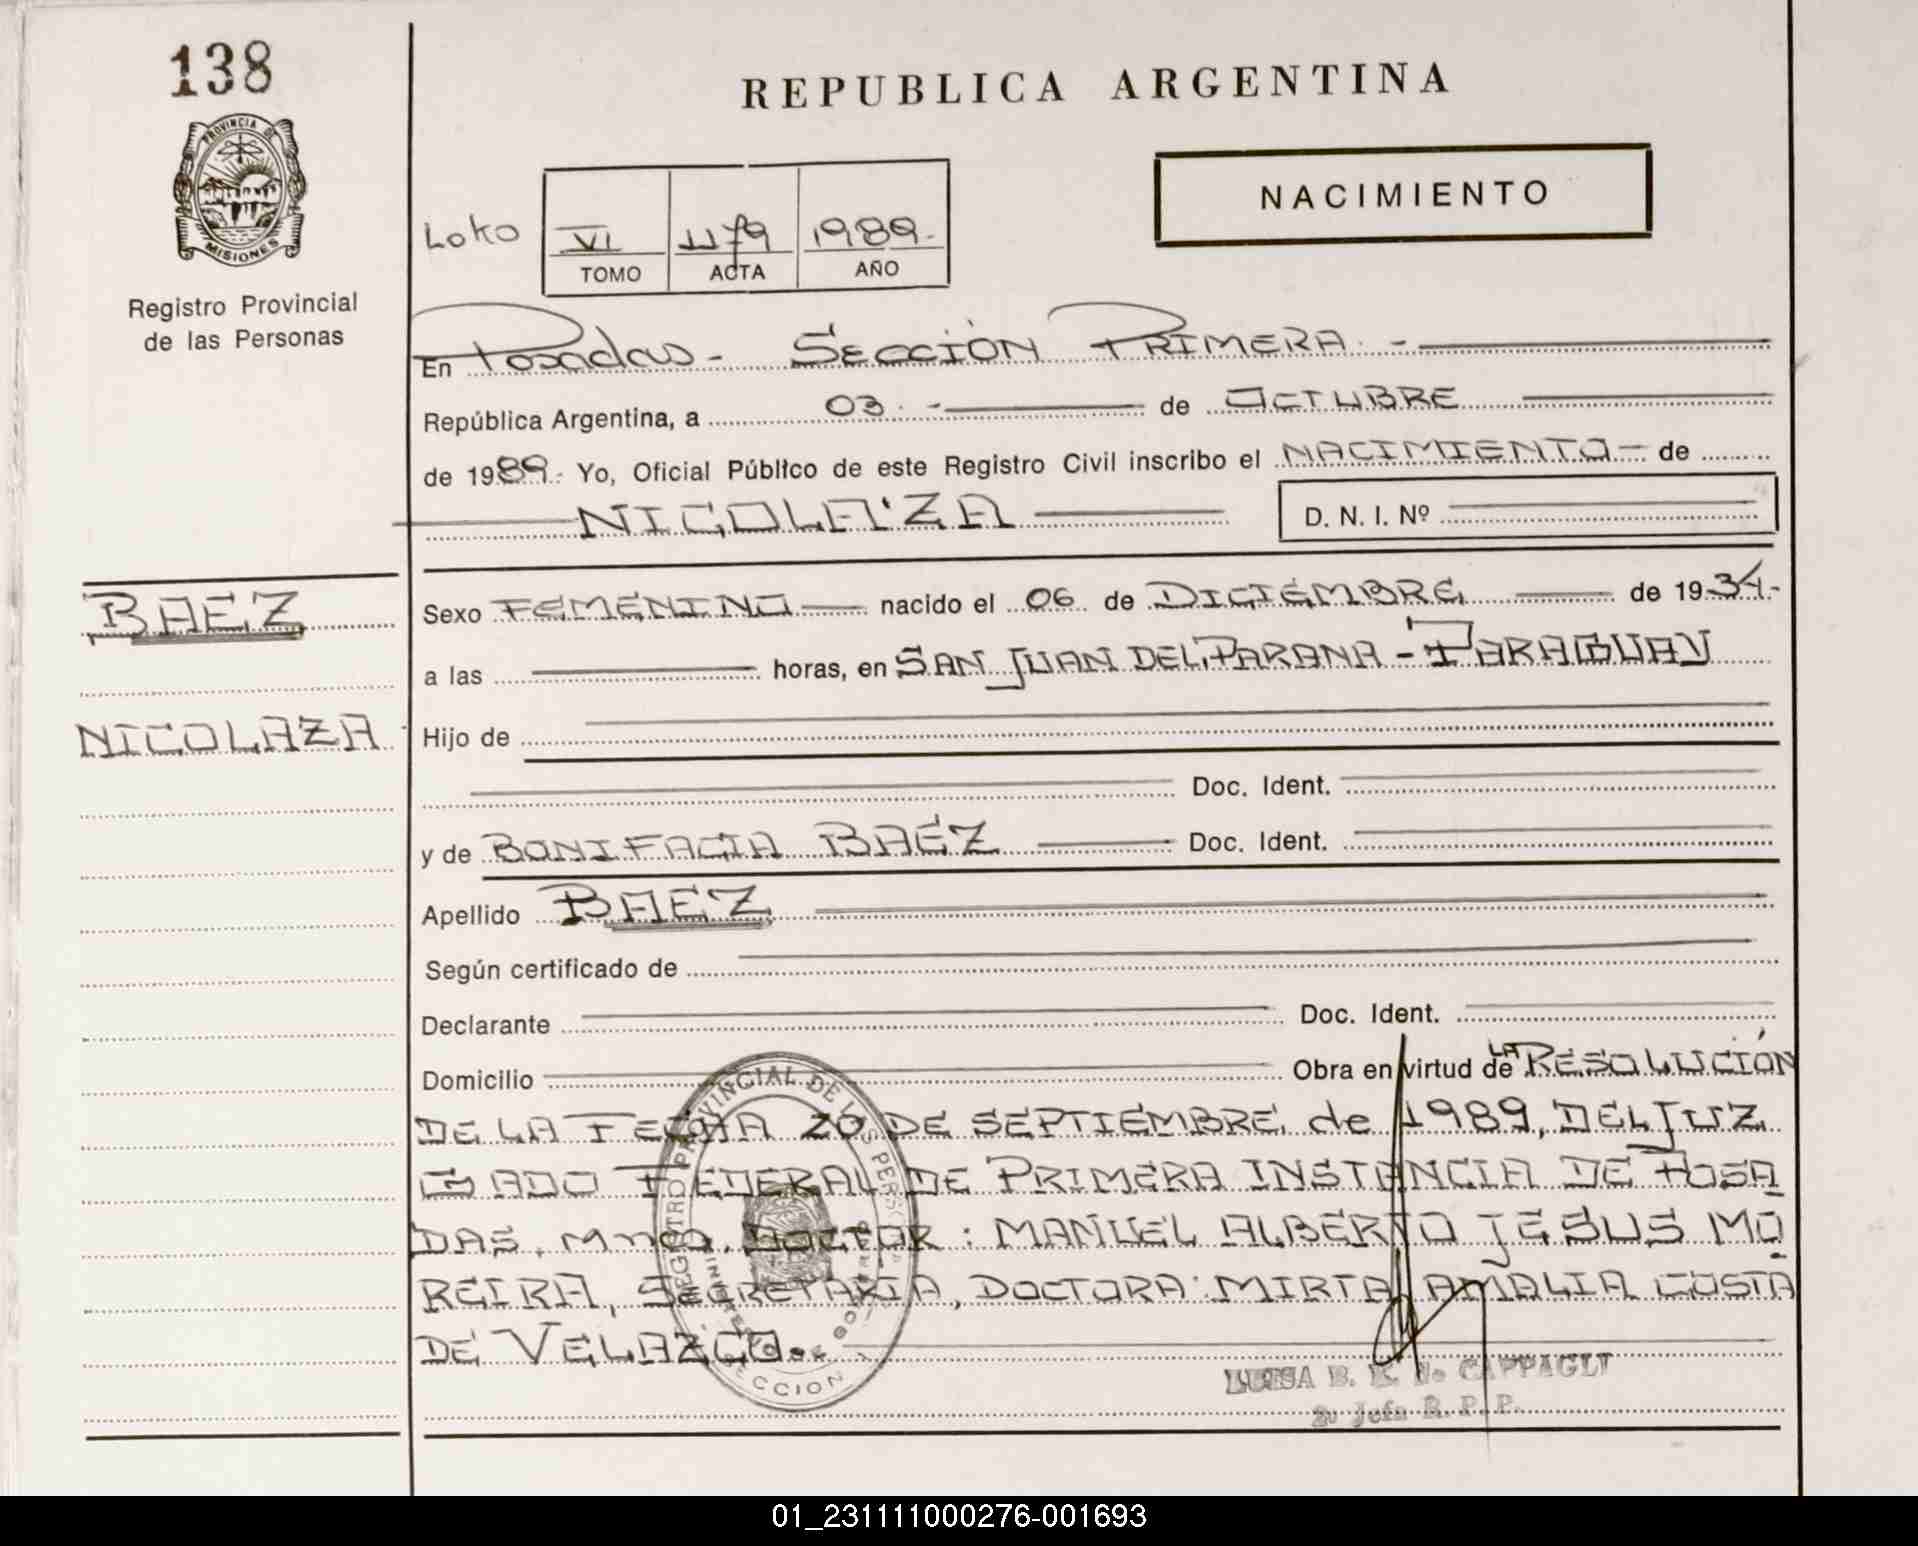 138
REPUBLICA ARGENTINA
PROVINCIA DE
MISIONES
Registro Provincial
de las Personas
NACIMIENTO
VI 1179 1989.
TOMO ACTA AÑO
En Posadas - SECCIÓN PRIMERA. -
República Argentina, a 03. - de OCTUBRE
de 1989.- Yo, Oficial Público de este Registro Civil inscribo el NACIMIENTO - de
NICOLA'ZA
D. N. I. Nº
BAEZ
NICOLAZA
Sexo FEMENINO nacido el 06 de DICIEMBRE de 1934.-
a las horas, en SAN JUAN DEL PARANA - PARAGUAY
Hijo de
Doc. Ident.
y de BONIFACIA BAÉZ Doc. Ident.
Apellido BAEZ
Según certificado de
Declarante Doc. Ident.
Domicilio Obra en virtud de LA RESOLUCIÓN
DE LA FECHA 20 DE SEPTIEMBRE de 1989, DEL JUZ
GADO FEDERAL DE PRIMERA INSTANCIA DE POSA
DAS, Mnes. DOCTOR: MANUEL ALBERTO JESUS MO
REIRA, SECRETARIA, DOCTORA: MIRTA AMALIA COSTA
DE VELAZCO.
REGISTRO PROVINCIAL DE LAS PERSONAS
SECCION 1
LUISA B. K. de CAPPAGLI
2º Jefa R. P. P.
01_231111000276-001693